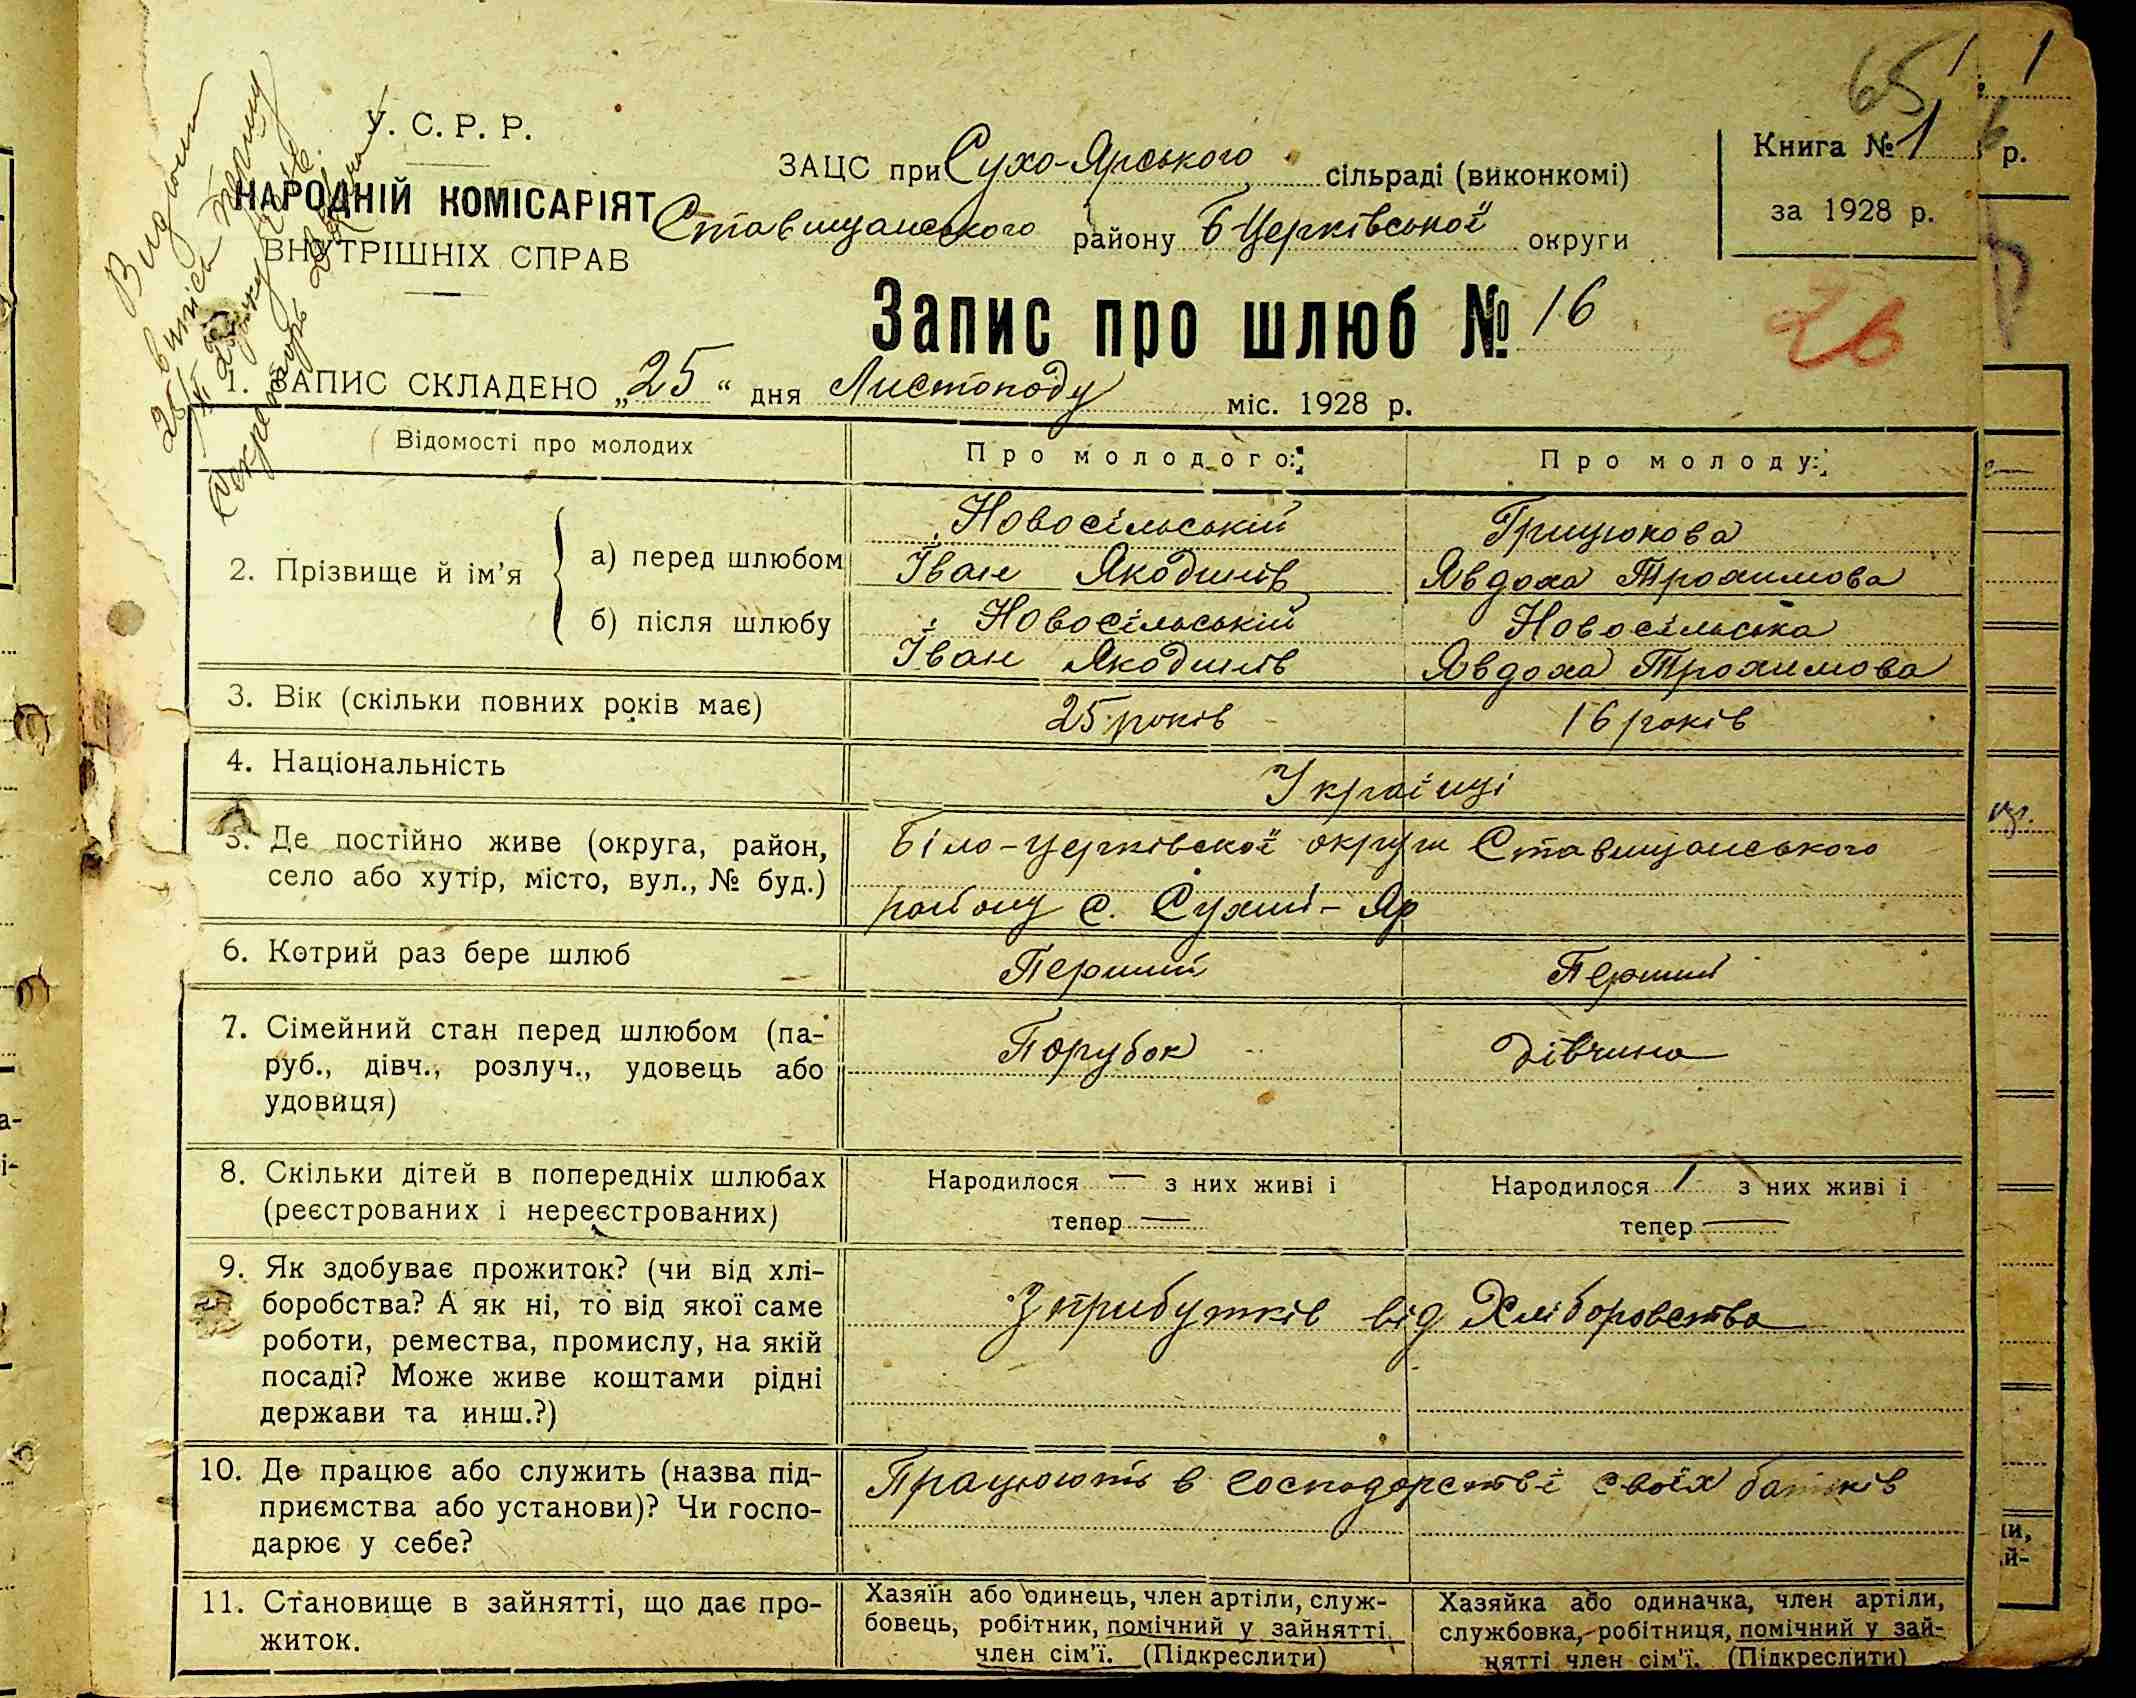 65
1
Видана
випись першу
25/XI 28 року
Секретарь
У. С. Р. Р.
НАРОДНІЙ КОМІСАРІЯТ
ВНУТРІШНІХ СПРАВ
ЗАЦС при Сухо-Ярського сільраді (виконкомі)
Ставищанського району Б Церківської округи
Книга № 1
за 1928 р.
р.
26
Запис про шлюб № 16
1. ЗАПИС СКЛАДЕНО „25“ дня Листопаду міс. 1928 р.
Відомості про молодих
Про молодого:
Про молоду:
2. Прізвище й ім'я
а) перед шлюбом
Новосільській
Іван Якодимів
Грицюкова
Явдоха Трохимова
б) після шлюбу
Новосільській
Іван Якодимів
Новосільська
Явдоха Трохимова
3. Вік (скільки повних років має)
25 років
16 років
4. Національність
Українці
5. Де постійно живе (округа, район,
село або хутір, місто, вул., № буд.)
Біло-Церківської округи Ставищанського
району с. Сухий-Яр
6. Котрий раз бере шлюб
Перший
Перший
7. Сімейний стан перед шлюбом (па-
руб., дівч., розлуч., удовець або
удовиця)
Парубок
дівчина
8. Скільки дітей в попередніх шлюбах
(реєстрованих і нереєстрованих)
Народилося — з них живі і
тепер —
Народилося / з них живі і
тепер —
9. Як здобуває прожиток? (чи від хлі-
боробства? А як ні, то від якої саме
роботи, ремества, промислу, на якій
посаді? Може живе коштами рідні
держави та инш.?)
З прибутків від Хліборобства
10. Де працює або служить (назва під-
приємства або установи)? Чи госпо-
дарює у себе?
Працюють в господарстві своїх батьків
11. Становище в зайнятті, що дає про-
житок.
Хазяїн або одинець, член артіли, служ-
бовець, робітник, помічний у зайнятті
член сім'ї. (Підкреслити)
Хазяйка або одиначка, член артіли,
службовка, робітниця, помічний у зай-
нятті член сім'ї. (Підкреслити)